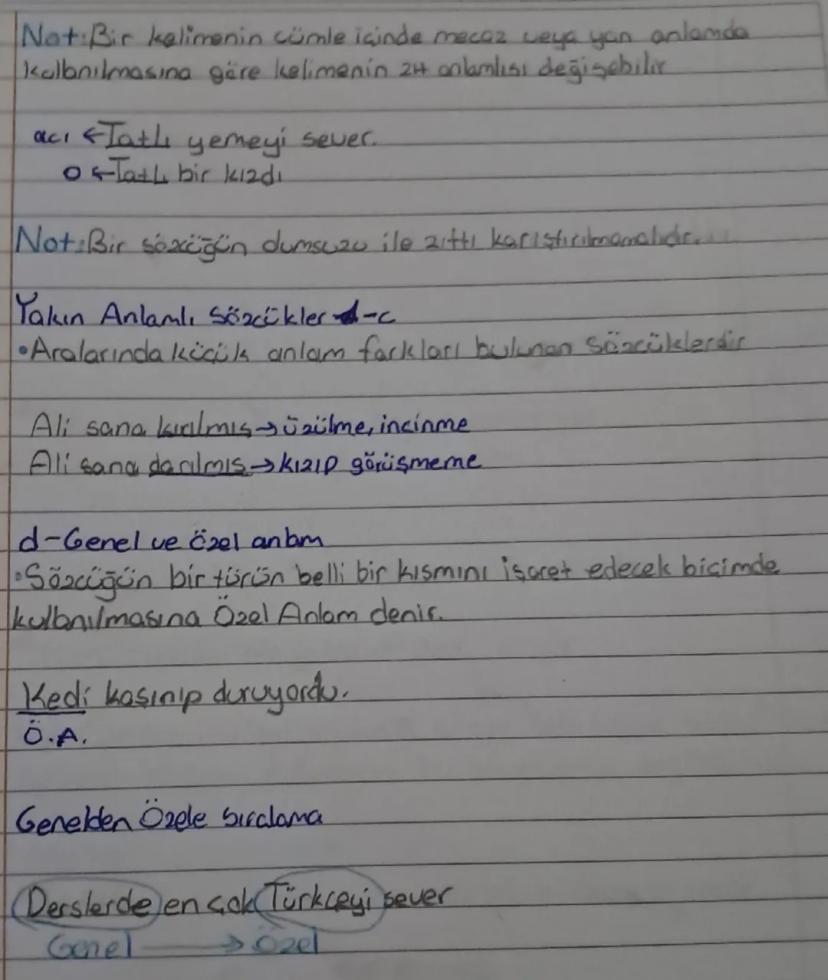 Not: Bir kelimenin cümle içinde mecaz veya yan anlamda
kullanılmasına göre kelimenin zıt anlamlısı değişebilir
acı ← Tatlı yemeyi sever.
O ← Tatlı bir kızdı
Not: Bir sözcüğün olumsuzu ile zıttı karıştırılmamalıdır...
Yakın Anlamlı Sözcükler -c
• Aralarında küçük anlam farkları bulunan sözcüklerdir
Ali sana kırılmış → üzülme, incinme
Ali sana darılmış → kızıp görüşmeme
d-Genel ve özel anlam
• Sözcüğün bir türün belli bir kısmını işaret edecek biçimde
kullanılmasına Özel Anlam denir.
Kedi kaşınıp duruyordu.
Ö.A.
Genelden Özele sıralama
Derslerde en çok Türkçeyi sever
Genel → Özel